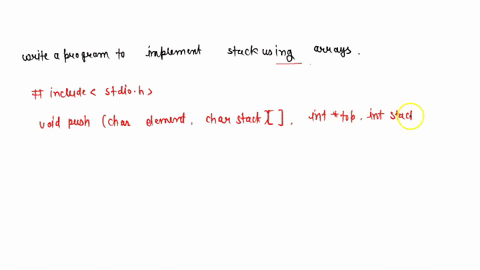 write a program to implement stack using arrays.
# include < stdio.h>
void push (char element, char stack[], int *top, int stack